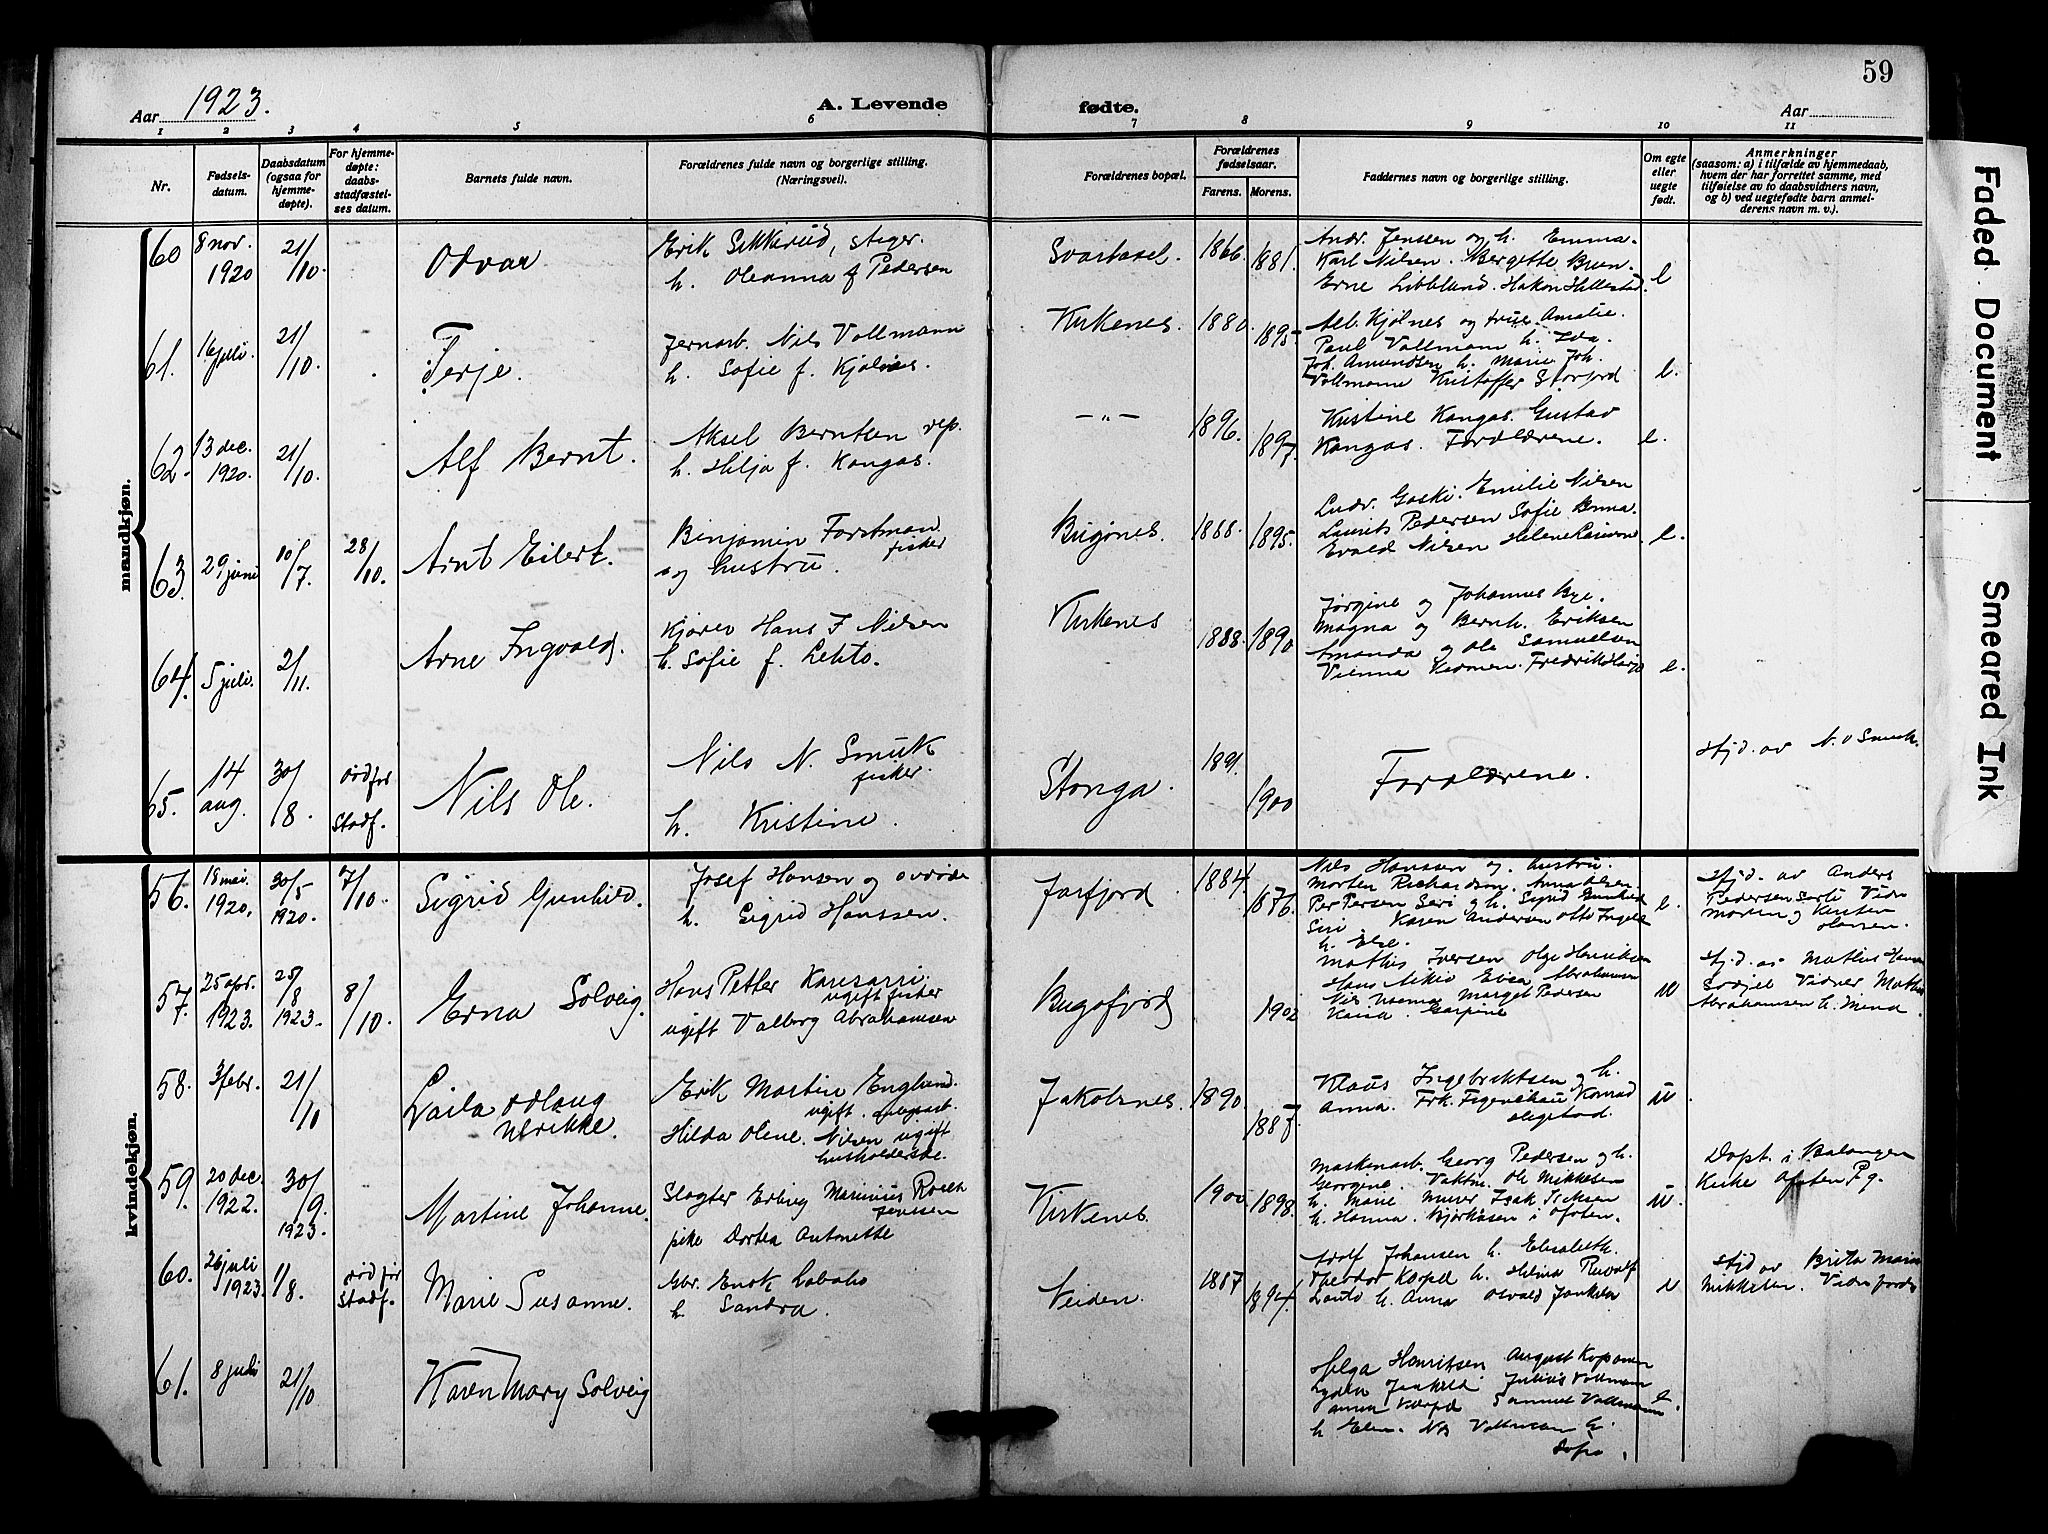 59
Aar 1923.
A. Levende fødte.
Aar
1 2 3 4 5 6 7 8 9 10 11
Nr.
Fødsels-
datum.
Daabsdatum
(ogsaa for
hjemme-
døpte).
For hjemme-
døpte:
daabs-
stadfæstel-
ses datum.
Barnets fulde navn.
Forældrenes fulde navn og borgerlige stilling.
(Næringsvei).
Forældrenes bopæl.
Forældrenes
fødselsaar.
Farens. Morens.
Faddernes navn og borgerlige stilling.
Om egte
eller
uegte
født.
Anmerkninger
(saasom: a) i tilfælde av hjemmedaab,
hvem der har forrettet samme, med
tilføielse av to daabsvidners navn,
og b) ved uegtefødte barn anmel-
derens navn m. v.).
mandkjøn.
60 8 nov. 1920 21/10. Odvar
Erik Sikkerud, stiger.
h. Oleanna f Pedersen
1866. 1881.
Andr. Jenssen og h. Emma.
Karl Nilsen. Bergette Brun.
e
61. 16 juli. 21/10. Terje.
Nils Vollmann
h. Sofie f. Kjølnes.
Kirkenes. 1880. 1895
Alb. Kjølnes og frue Amalie.
Paul Vollmann h. Ida.
Joh. Amundsen h. Marie Joh.
Vollmann Kristoffer Storjord
e.
62. 13 dec. 1920. 21/10. Alf Bernt.
Aksel Berntsen rep.
h. Hilja f. Kangas.
— „ — 1896. 1897.
Kristine Kangas. Gustav
Kangas. Forældrene.
e.
63. 29 juni 10/7. 28/10. Arnt Eilert.
Binjamin Forstman
fisker
og hustru.
Bugønes. 1888. 1895.
Ludv. Gaski. Emilie Nilsen
Laurits Pedersen Sofie
Evald Nilsen Helene
e.
64. 5 juli. 2/11. Arne Ingvald.
Kjører Hans J Nilsen
h. Sofie f. Lehto.
Kirkenes 1888. 1890
Jørgine og Johannes Bye.
Magna og Bernh. Eriksen
Amanda og Ole Samuelsen
Vienna
e.
65. 14 aug. 30/8. død før stadf. Nils Ole.
Nils N. Smuk
fisker.
h. Kristine.
Stonga. 1891. 1900
Forældrene.
Hjd. av N. O Smuk.
kvindekjøn.
56. 18 mai. 1920. 30/5 1920. 7/10. Sigrid Gunhild.
Josef Hansen og
h. Sigrid Hanssen.
Jarfjord 1884 1876.
Nils Hanssen og hustru.
Morten Richardsen. Anna Olsen
Per Persen Sari og h. Sigrid Gunhild
Siri. Karen Andersen Otto
h. Else.
e.
Hjd. av Anders
Pedersen Sarti Vidn
Morten og Kirsten
Hansen.
57. 25 apr. 1923. 25/8 1923. 8/10. Erna Solveig.
Hans Petter
ugift fisker
ugift Valborg Abrahamsen
Bugøfjord 1902
Mathis Iversen Olga Henriksen
Hans Aikio Elisa Abrahamsen
Nils Margit Pedersen
u
Hjd. av Mathis
Vidner Mathis
Abrahamsen h.
58. 3 febr. 21/10 Laila Odlaug
Ulrikke.
Erik Martin Englund.
ugift.
Hilda Oline Nilsen ugift
husholderske.
Jakobsnes. 1890. 1887
Klaus Ingebriktsen og h.
Anna. Frk. Konrad
u.
59. 20 dec. 1922. 30/9. 1923. Martine Johanne.
Slagter Erling Marinius
pike Dortea Antonette
Kirkenes. 1900 1898.
Maskinarb. Georg Pedersen og h.
Georgine. Ole Mikkelsen
h. Marie Murer Isak
h. Hanna. i Ofoten.
u.
Døpt i Balangen
Kirke Ofoten Pg.
60. 26 juli 1923. 1/8. død før stadf. Marie Susanne.
Gbr. Enok Labaho
h. Sandra.
Neiden. 1887 1894.
Adolf Johansen h. Elisabeth.
h. Hilma
h. Anna Osvald
Hjd av Brita Marie
Mikkelsen.
61. 8 juli 21/10 Karen Mary Solveig
Helga Henriksen August
Julius Vollmann
Samuel Vollmann
h. Elen. Nils Vollmann h.
Sofie.
e.
Faded Document
Smeared Ink